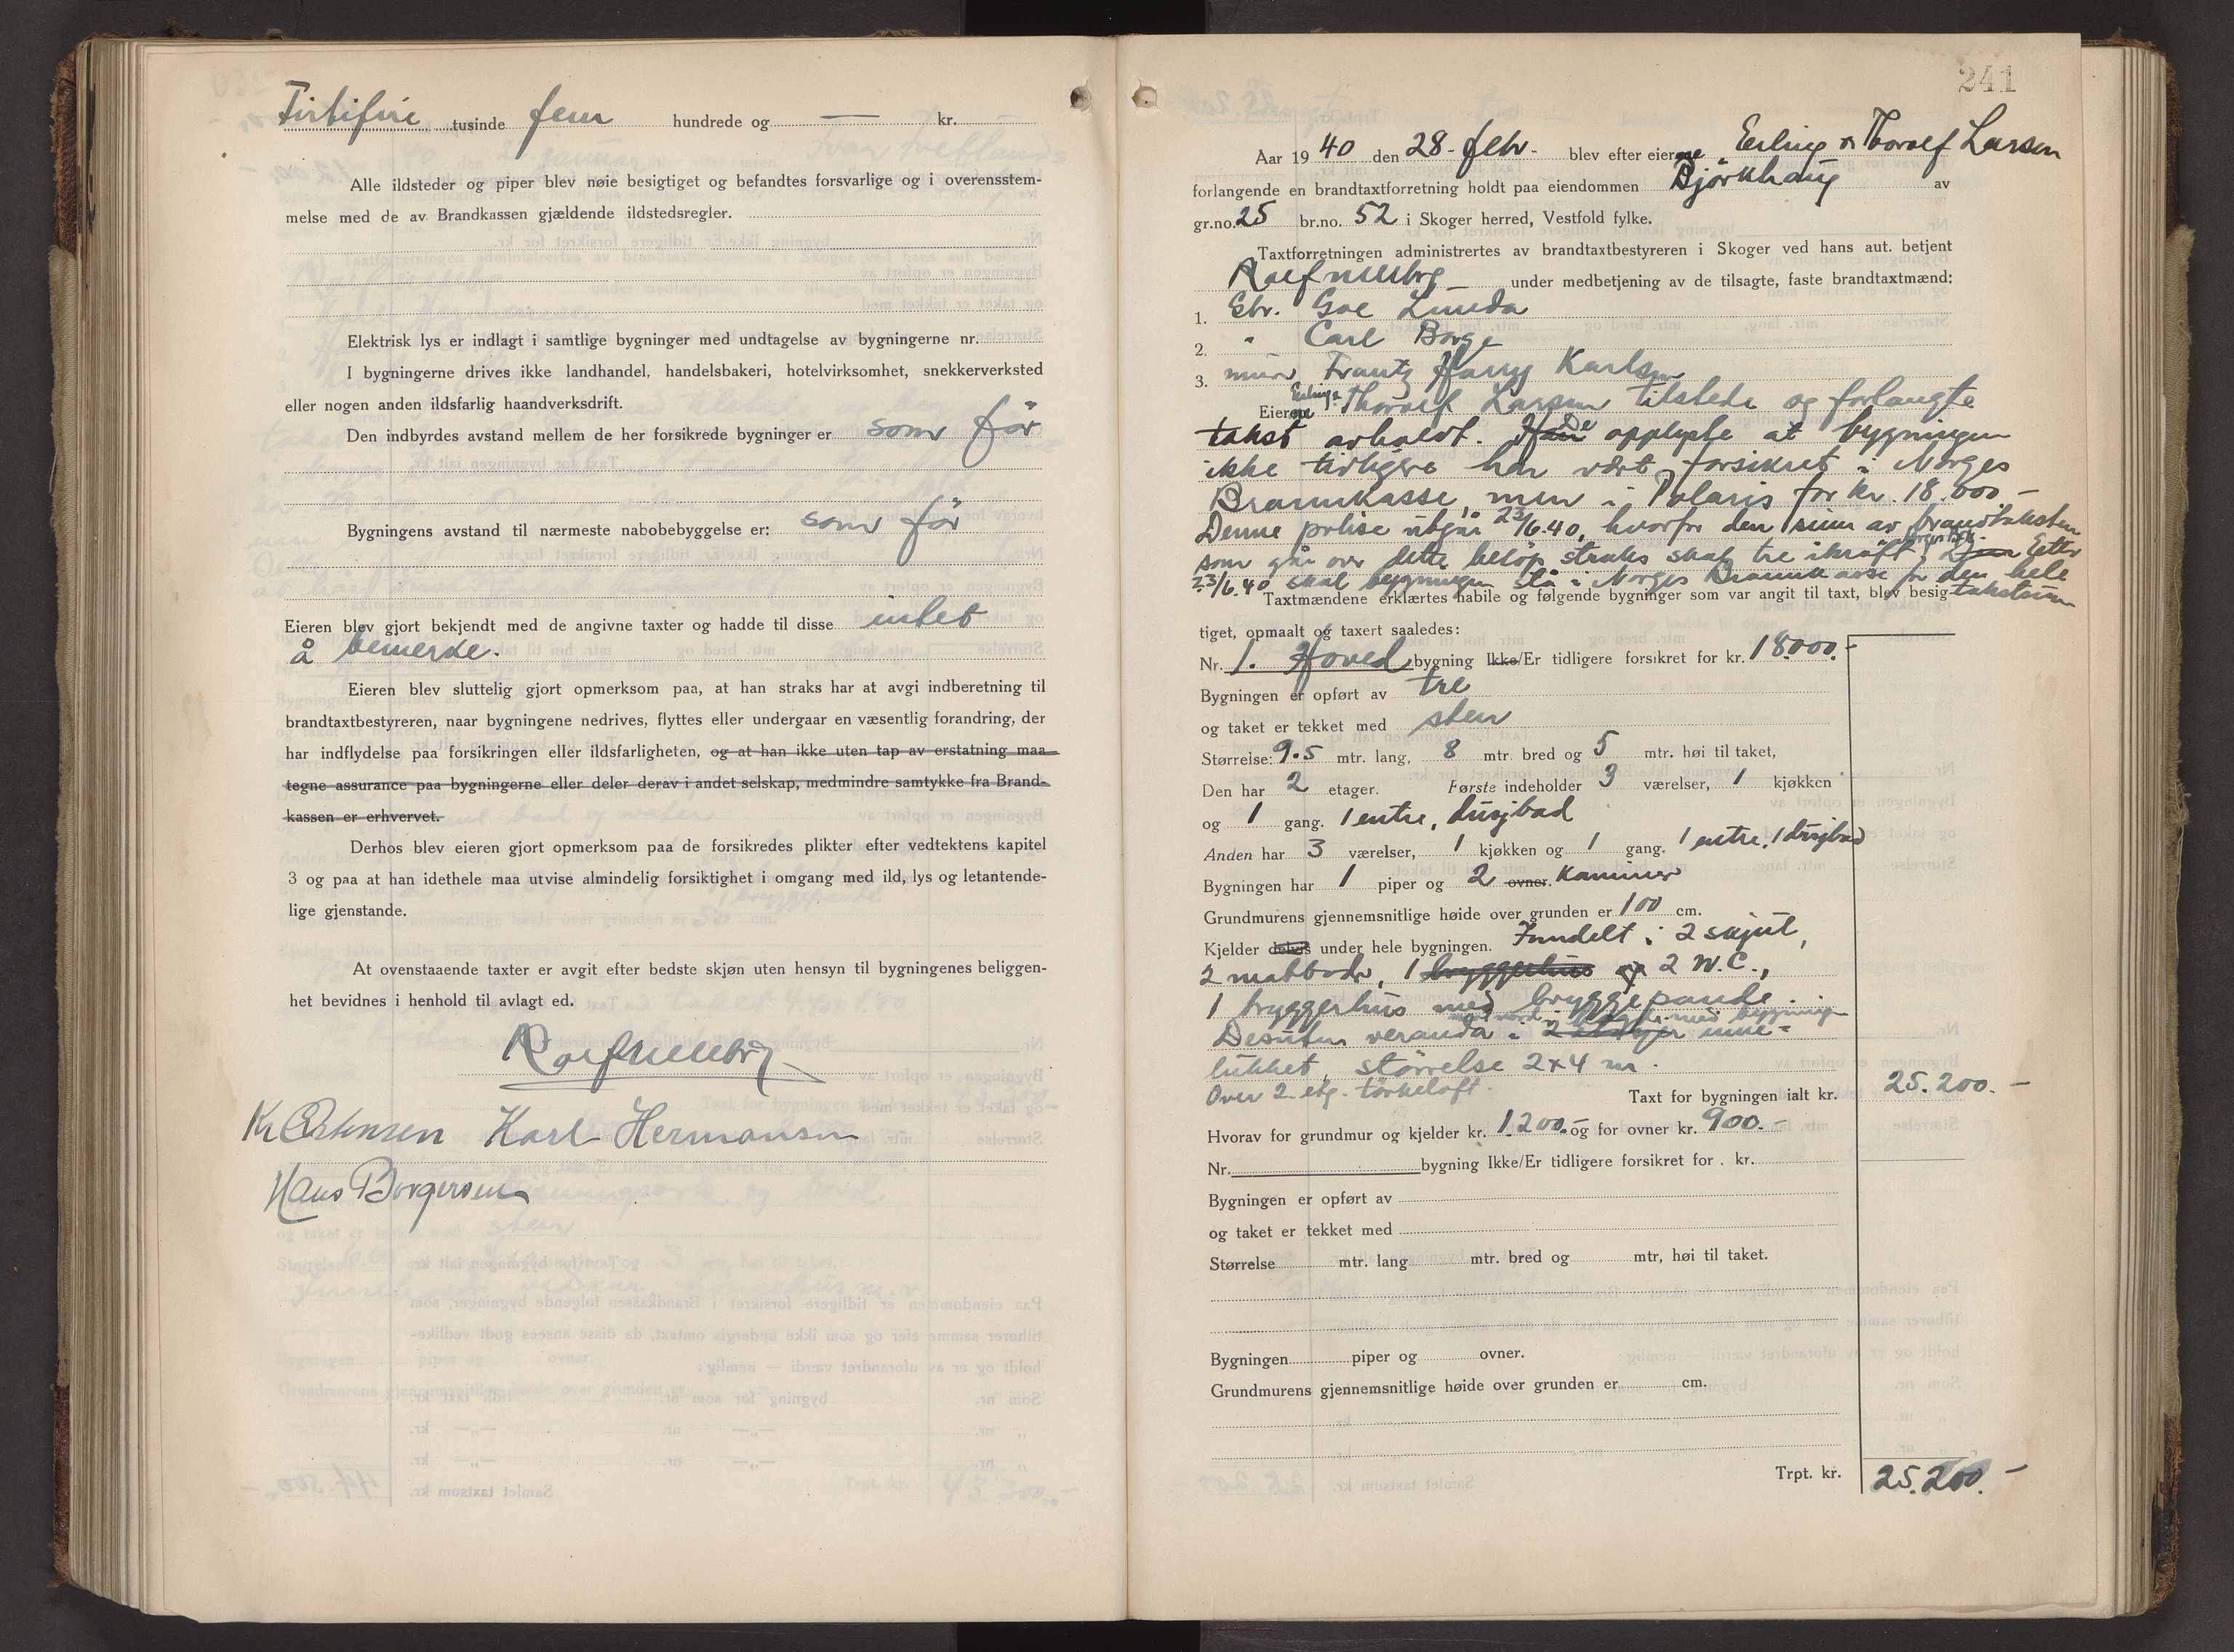 Firtifire tusinde fem hundrede og — kr.
Alle ildsteder og piper blev nøie besigtiget og befandtes forsvarlige og i overensstem-
melse med de av Brandkassen gjældende ildstedsregler.
Elektrisk lys er indlagt i samtlige bygninger med undtagelse av bygningerne nr.
I bygningerne drives ikke landhandel, handelsbakeri, hotelvirksomhet, snekkerverksted
eller nogen anden ildsfarlig haandverksdrift.
Den indbyrdes avstand mellem de her forsikrede bygninger er som før
Bygningens avstand til nærmeste nabobebyggelse er: som før
Eieren blev gjort bekjendt med de angivne taxter og hadde til disse intet
å bemerke.
Eieren blev sluttelig gjort opmerksom paa, at han straks har at avgi indberetning til
brandtaxtbestyreren, naar bygningene nedrives, flyttes eller undergaar en væsentlig forandring, der
har indflydelse paa forsikringen eller ildsfarligheten, og at han ikke uten tap av erstatning maa
tegne assurance paa bygningerne eller deler derav i andet selskap, medmindre samtykke fra Brand-
kassen er erhvervet.
Derhos blev eieren gjort opmerksom paa de forsikredes plikter efter vedtektens kapitel
3 og paa at han idethele maa utvise almindelig forsiktighet i omgang med ild, lys og letantende-
lige gjenstande.
At ovenstaaende taxter er avgit efter bedste skjøn uten hensyn til bygningenes beliggen-
het bevidnes i henhold til avlagt ed.
Karl Hermansen
Hans Borgersen
241
Aar 1940 den 28. febr. blev efter eierne Erling og Thoralf Larsen
forlangende en brandtaxtforretning holdt paa eiendommen Bjørkhaug av
gr.no. 25 br.no. 52 i Skoger herred, Vestfold fylke.
Taxtforretningen administrertes av brandtaxtbestyreren i Skoger ved hans aut. betjent
under medbetjening av de tilsagte, faste brandtaxtmænd:
1. Gbr. Lunda
2. " Carl Borge
3. murer Frantz Harry Karlsen
Eierne Erling & Thoralf Larsen tilstede og forlangte
takst avholdt. Han De opplyste at bygningen
ikke tidligere har vært forsikret i Norges
Brannkasse, men i Polaris for kr. 18.000.-
Denne polise utgår 23/6.40, hvorfor den sum av brandtaksten
som går over dette beløp straks skal tre ikraft i Norges Br.k. Efter
23/6.40 skal bygningen stå i Norges Brannkasse for den hele
takstsum
Taxtmændene erklærtes habile og følgende bygninger som var angit til taxt, blev besig-
tiget, opmaalt og taxert saaledes:
Nr. 1. Hoved bygning Ikke/Er tidligere forsikret for kr. 18000.-
Bygningen er opført av tre
og taket er tekket med sten
Størrelse: 9.5 mtr. lang, 8 mtr. bred og 5 mtr. høi til taket,
Den har 2 etager. Første indeholder 3 værelser, 1 kjøkken
og 1 gang. 1 entre, dusjbad
Anden har 3 værelser, 1 kjøkken og 1 gang. 1 entre, 1 dusjbad
Bygningen har 1 piper og 2 ovner. Kaminer
Grundmurens gjennemsnitlige høide over grunden er 100 cm.
Kjelder delvis under hele bygningen. Inndelt i 2 skjul,
2 matboder, 1 bryggerhus og 2 W.C.,
1 bryggerhus med bryggepande.
Desuten veranda i 2 etager inne-
lukket, størrelse 2x4 m.
Over 2. etg. tørkeloft.
Taxt for bygningen ialt kr. 25.200.-
Hvorav for grundmur og kjelder kr. 1.200.- og for ovner kr. 900.-
Nr. bygning Ikke/Er tidligere forsikret for . kr.
Bygningen er opført av
og taket er tekket med
Størrelse mtr. lang mtr. bred og mtr, høi til taket.
Bygningen piper og ovner.
Grundmurens gjennemsnitlige høide over grunden er cm.
Trpt. kr. 25.200.-